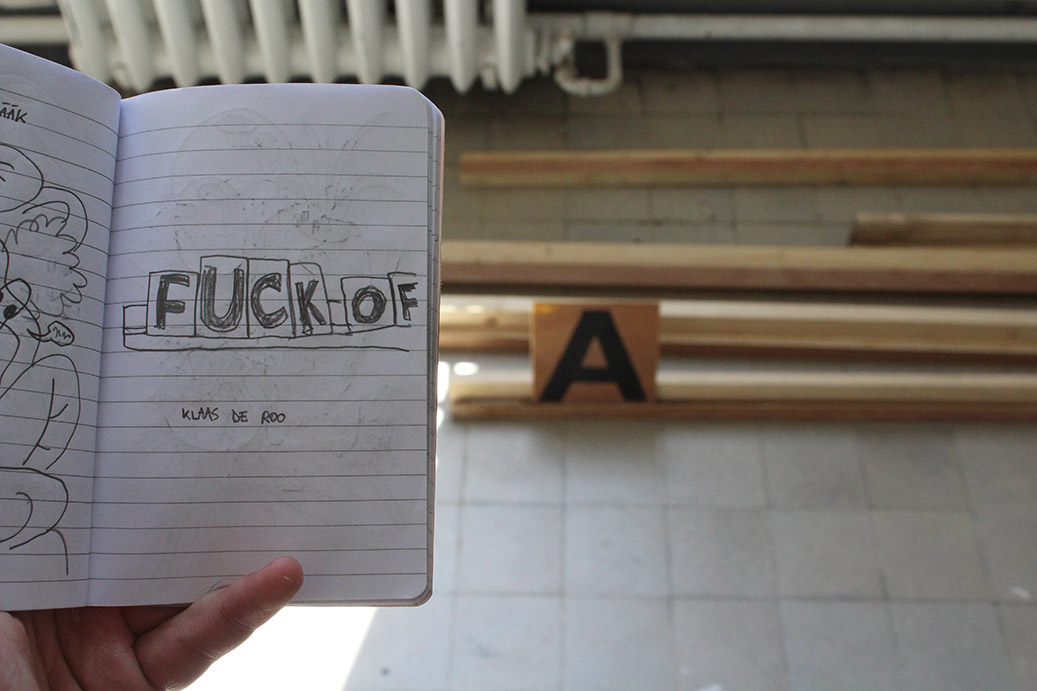 ÄÄK
FUCK OF
KLAAS DE ROO
A